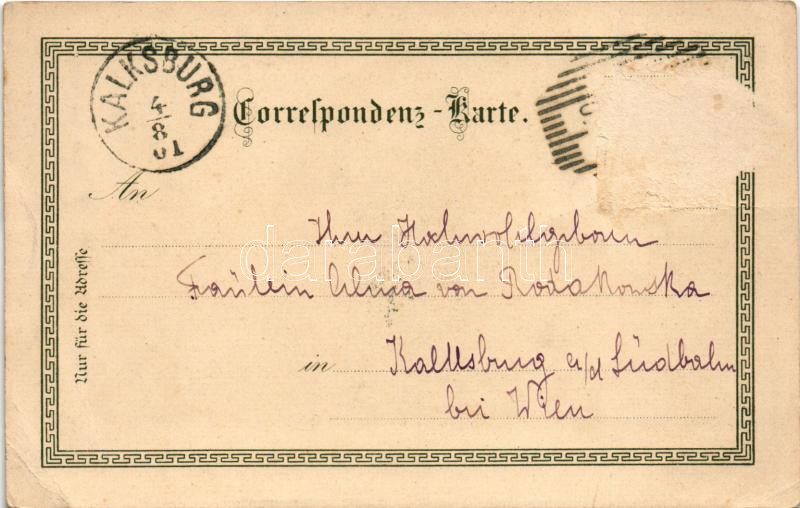 KALKSBURG
4/8
01
Correspondenz-Karte.
An
Ihrer Hochwohlgeboren
Fräulein Alma von Rodakowska
in Kalksburg a/d Südbahn
bei Wien
Nur für die Adresse
darabanth